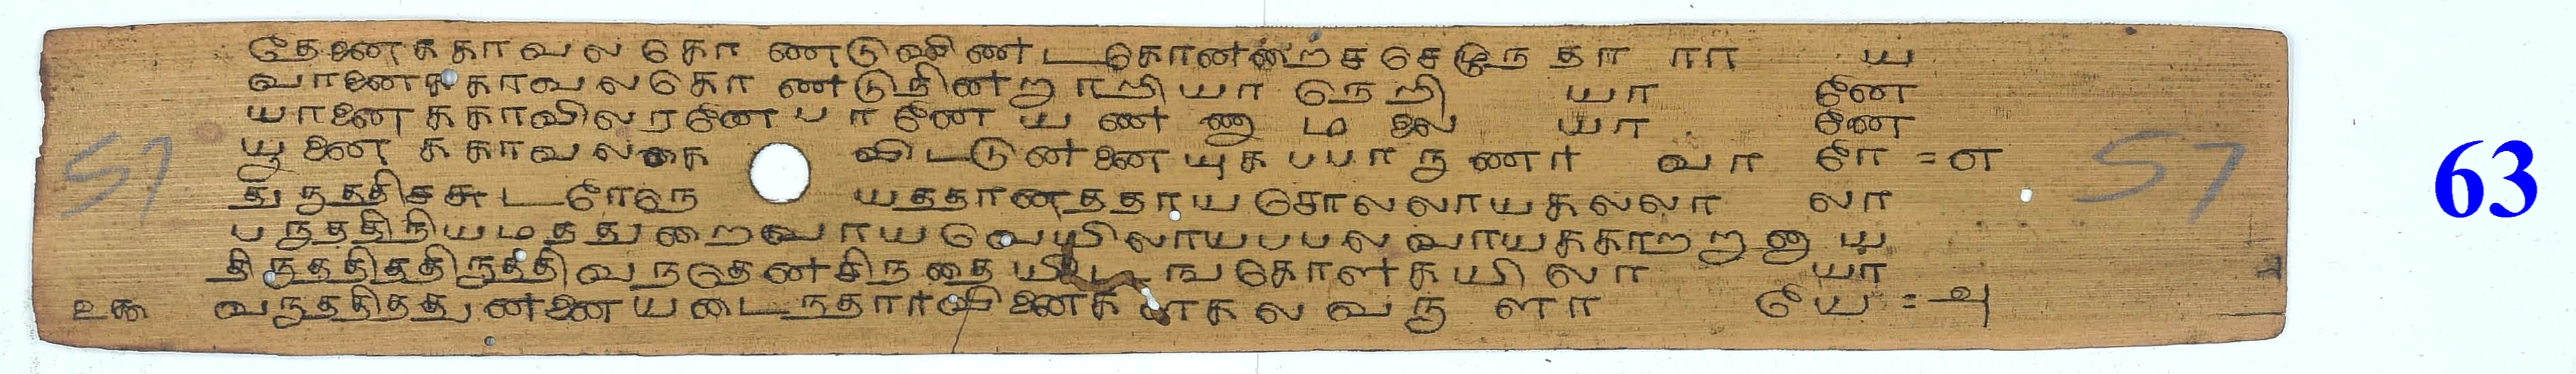 தேனைககாவலகொ ணடுவிணட கொனனறசசெழுநதா ரா ய
வானைககாவலகொ ணடுநினறாறியா நெறி யா னே
யானைககாவிலரனேபானே யண ணாமலை யா னே
யூனைககாவலகை விடடுனனையுகபபாருணர வா ரே = ள
துருததிசசுடரேநெ யததானததாயசொலலாயகலலா லா
பருததிநியமததுறைவாயவெயிலாயபபலவாயககாறறானாய
திருததிததிருததிவநதெனசிநதையி டஙகொளகயிலா யா
வருததிததுனனையடைநதார வினைக ளகலவரு ளா யே = அ
உக
57
57
63